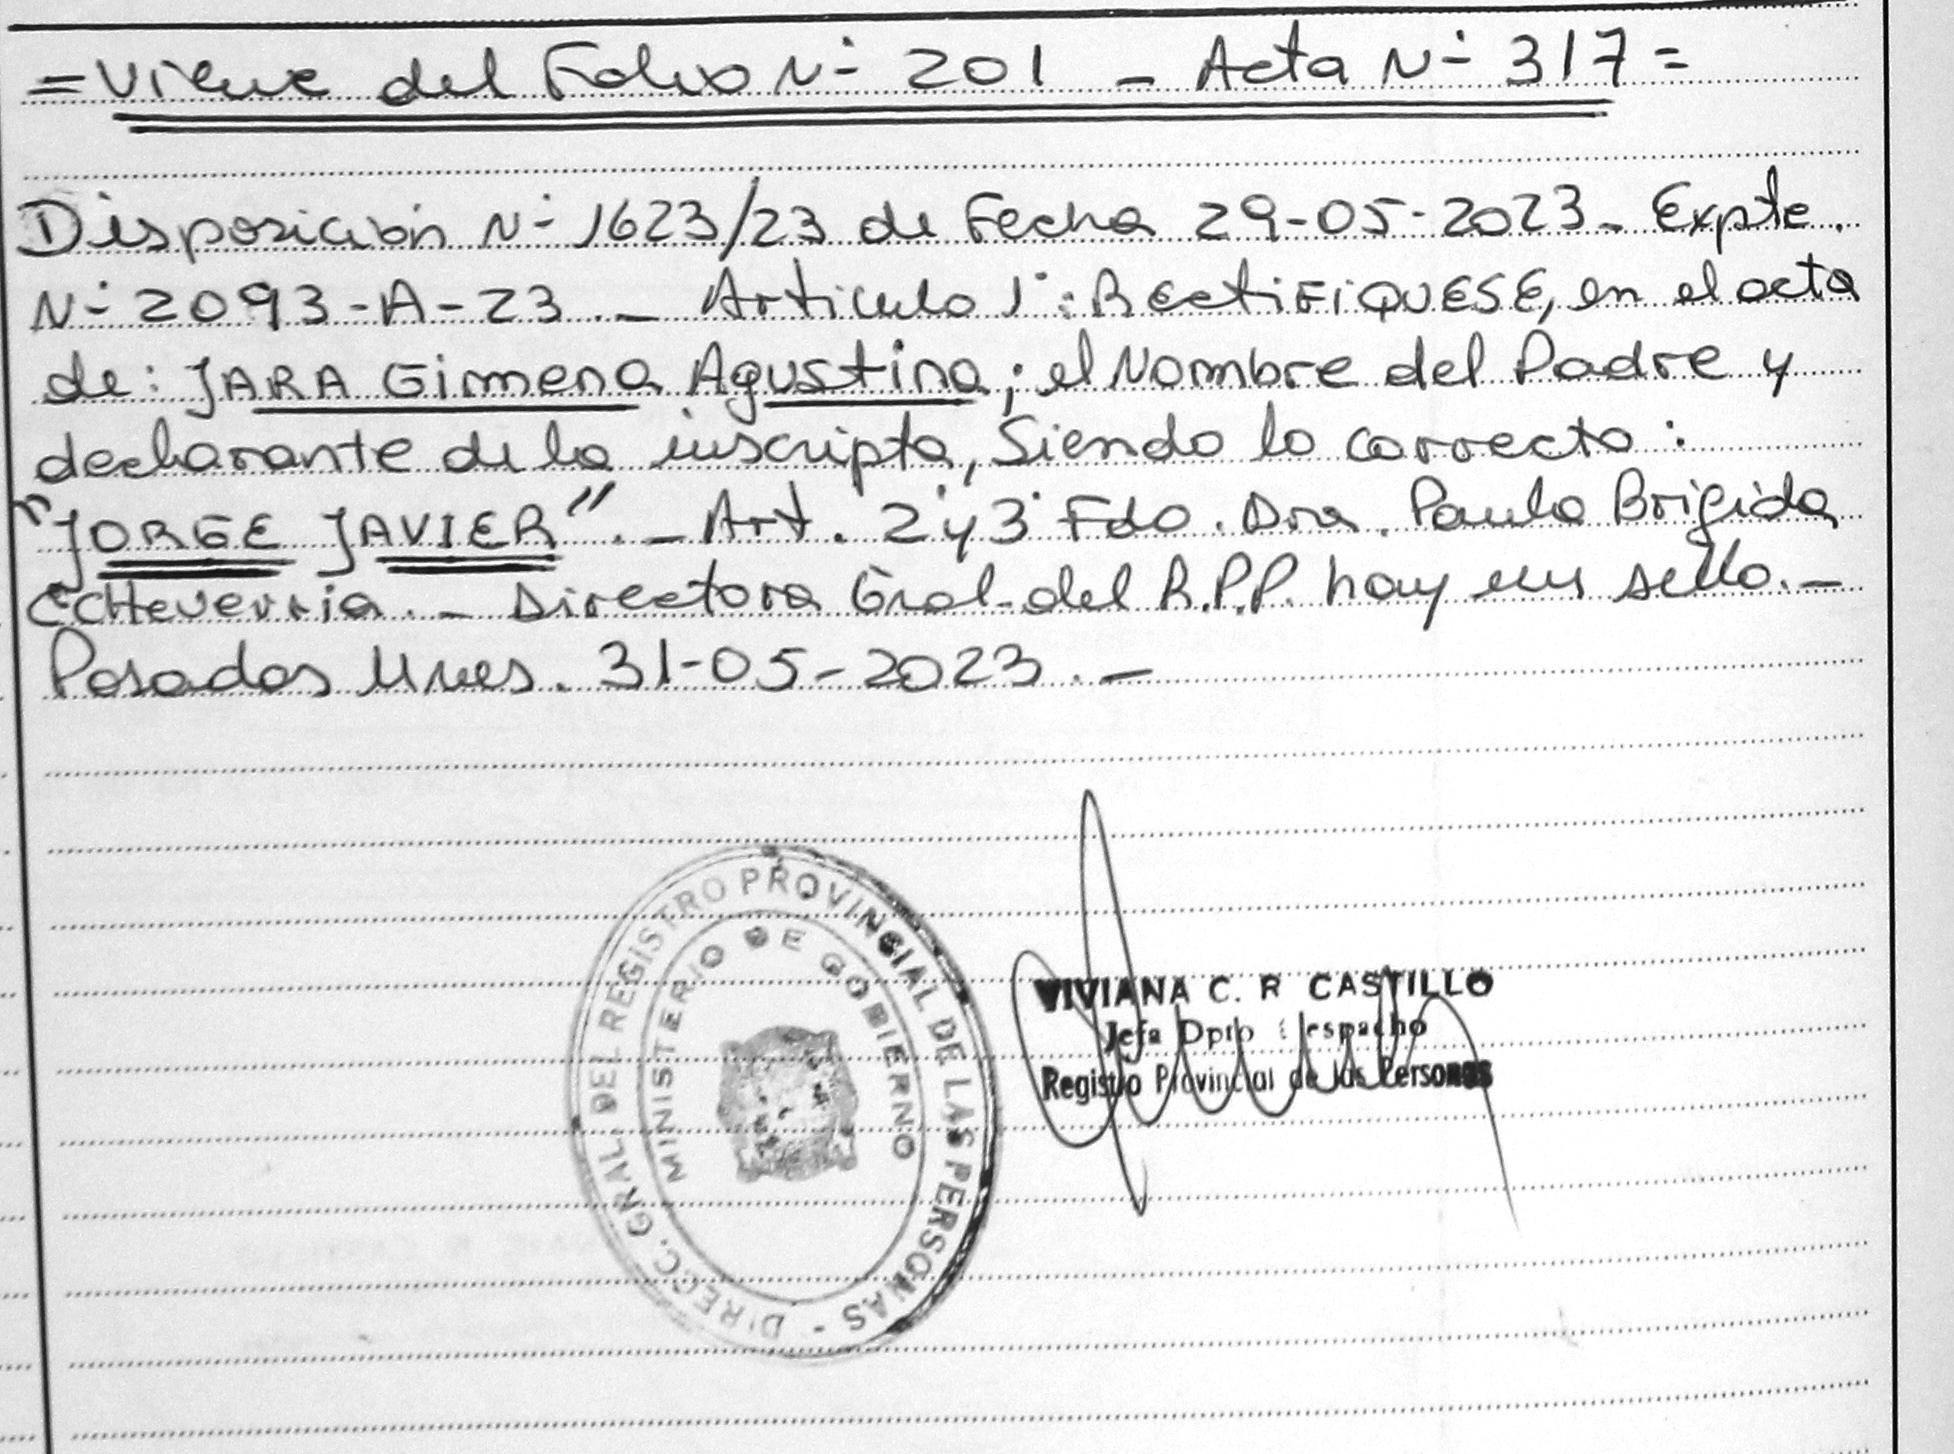 = Viene del Folio N° 201 - Acta N° 317 =
Disposición N° 1623/23 de Fecha 29-05-2023 - Expte.
N° 2093-A-23.- Articulo 1°: RectiFiQUESE, en el acta
de: JARA Gimena Agustina; el Nombre del Padre y
declarante de la inscripta, Siendo lo correcto:
"JORGE JAVIER".- Art. 2° y 3° Fdo. Dra. Paula Brigida
Echeverria.- Directora Gral. del R.P.P. hay un sello.-
Posadas Mnes. 31-05-2023.-
DIRECC. GRAL. DEL REGISTRO PROVINCIAL DE LAS PERSONAS -
MINISTERIO DE GOBIERNO
VIVIANA C. R CASTILLO
Jefa Dpto Despacho
Registro Provincial de las Personas